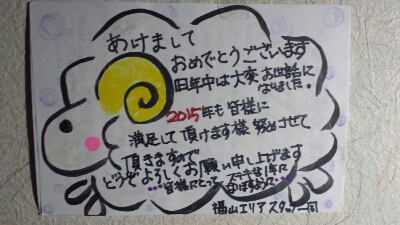 あけまして
おめでとうございます
旧年中は大変お世話に
なりました。
2015年も皆様に
満足して頂けます様努めさせて
頂きますので
どうぞよろしくお願い申し上げます
皆様にとってステキな1年に
なりますように
福山エリアスタッフ一同